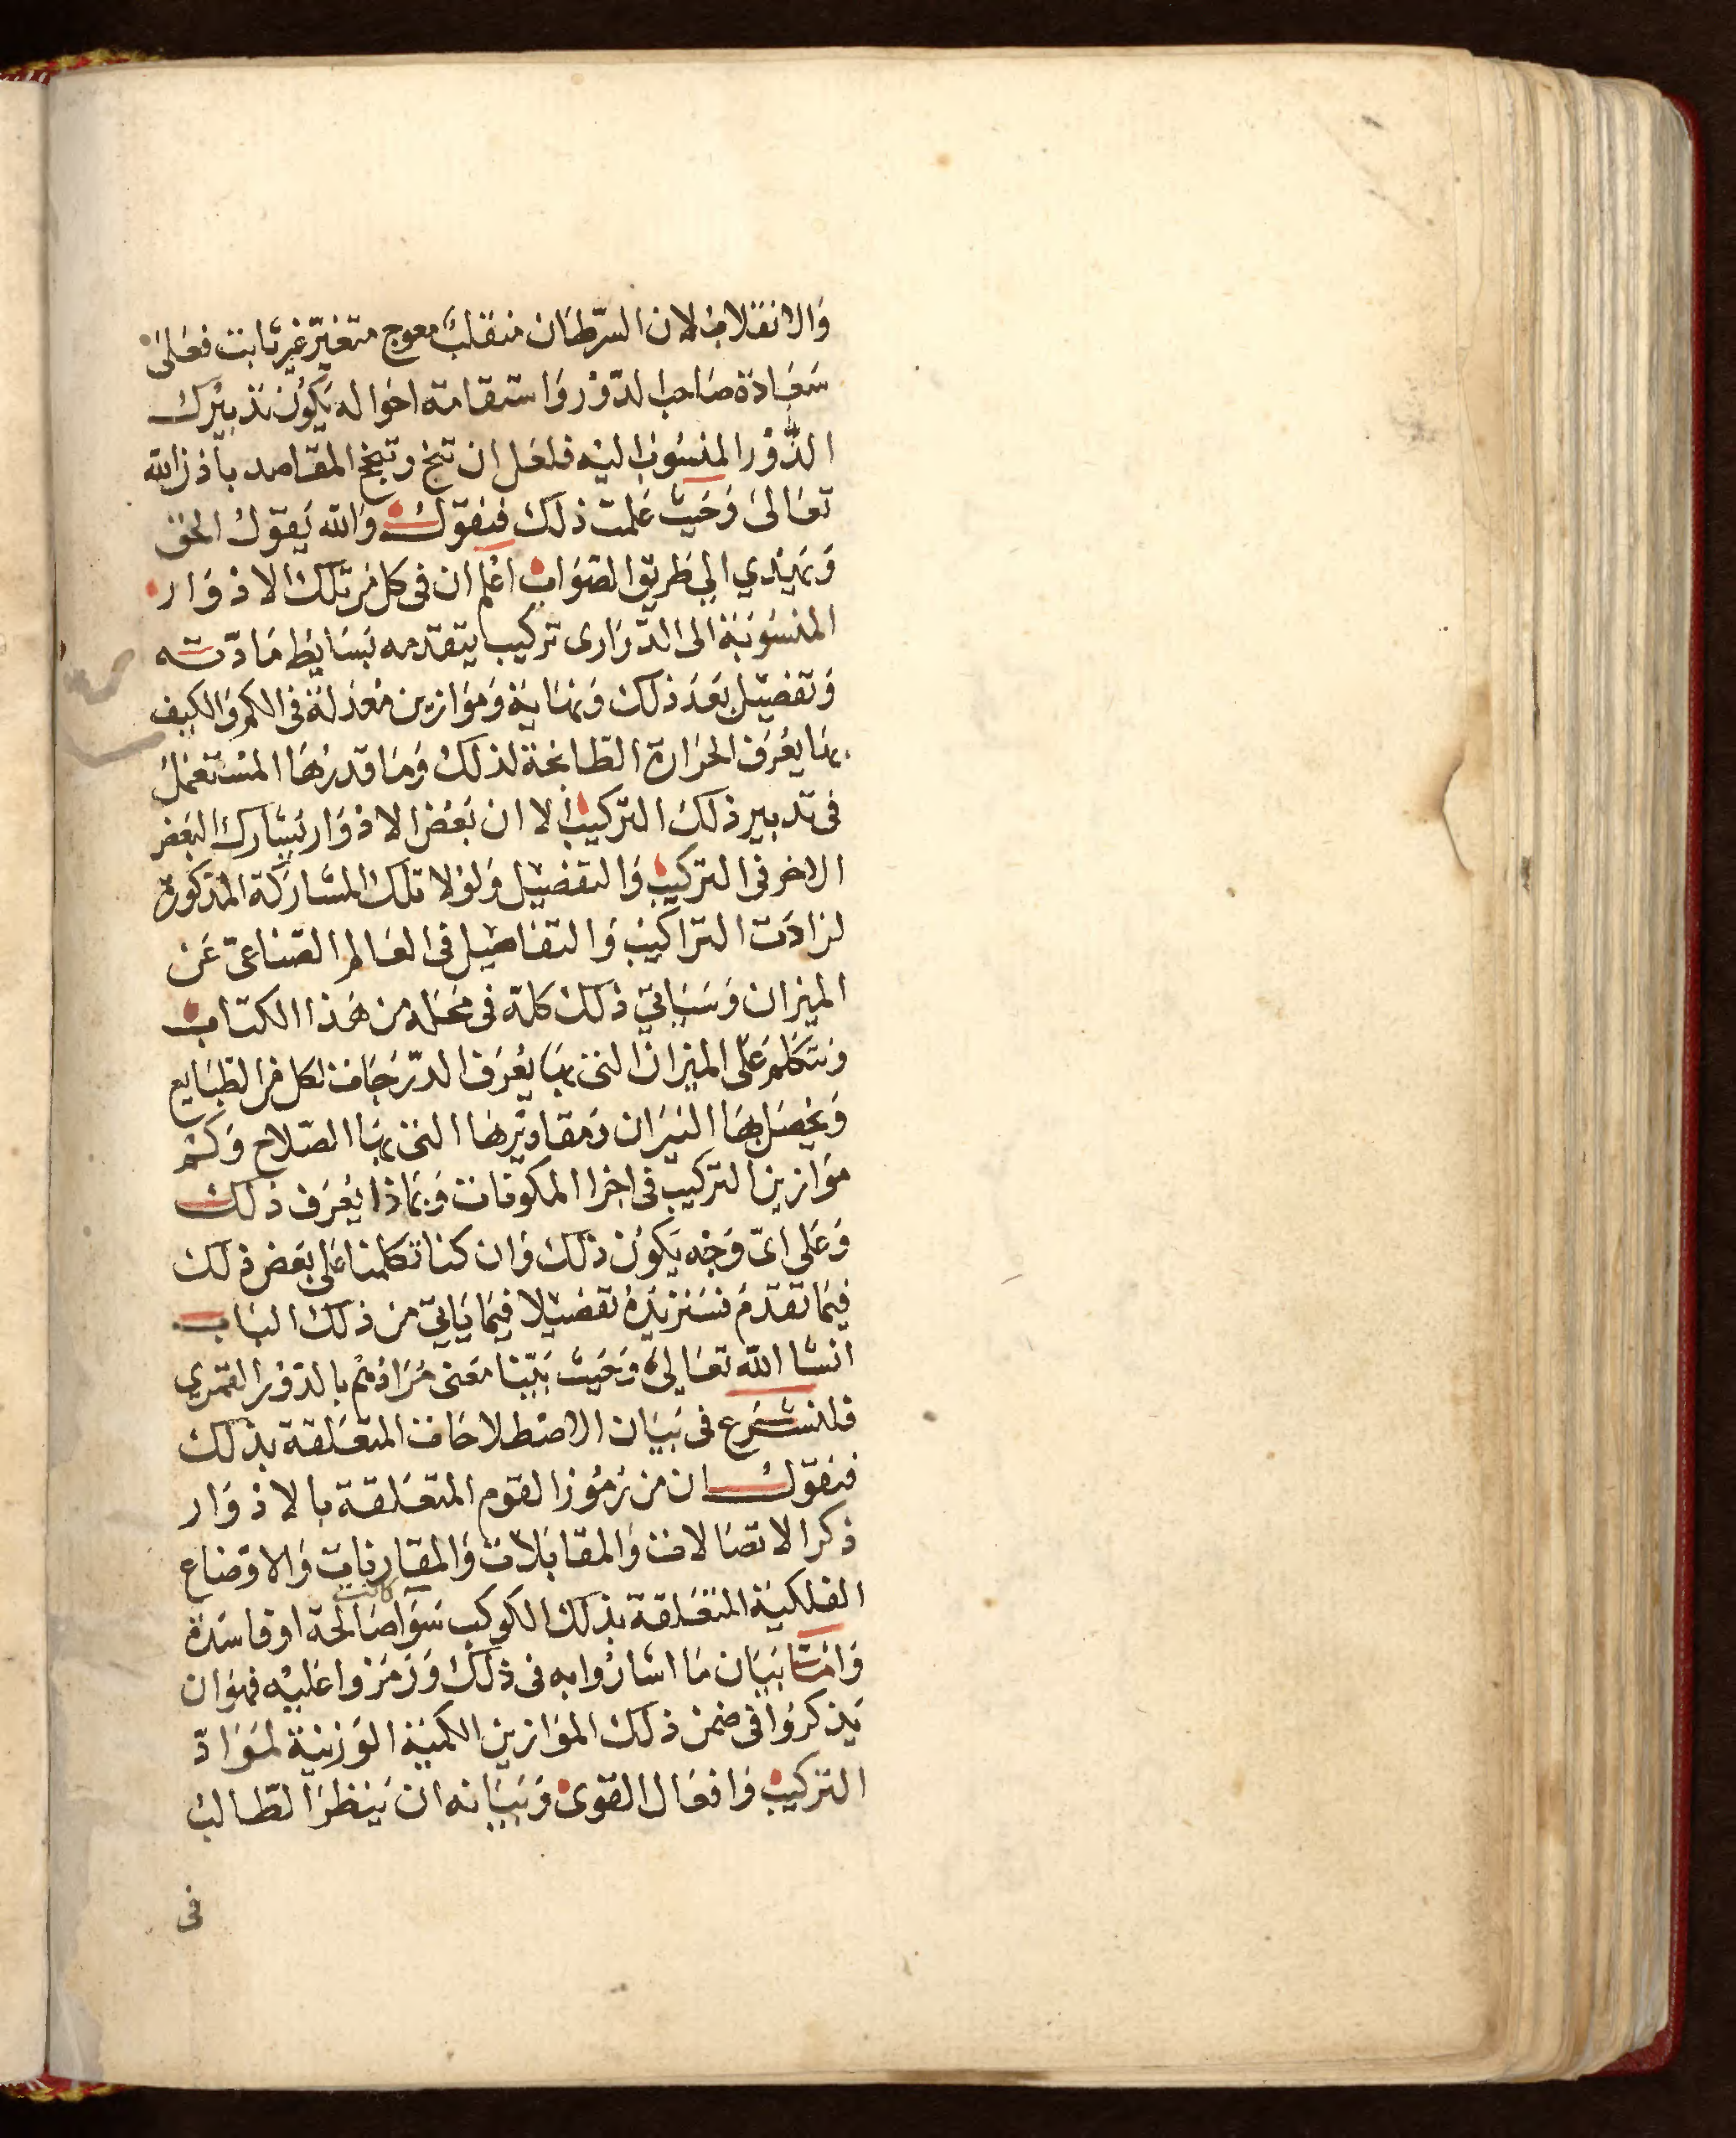 وَالانقلاب لان السّرطان منقلب معوج متغيّر غير ثابت فعَلى
سَعَادَة صَاحب الدّوْر وَاستقامة احوَاله يَكوُن تدبيْرك
الدَّوْر المنسُوب اليْه فلعَل ان تنجَح وتنجح المقَاصد باذن الله
تعَالىَ وَحَيث عَلمت ذلك فنَقوُل وَالله يَقوُل الحَق
وَيَهْدي الي طَريق الصَوَاب اعْلم ان فى كل مْن تلك الادْوَار
المنسُوبَة الى الدّرَارى تركيب يتقدمه بَسَايط مَادّته
وَتفصيْل بَعَد ذلك وَنهَايَة وَمَوازين مُعَدلة فى الكم وَالكيف
بهَا يعُرَف الحَرَارة الطابخة لذلك وَمَا قدرُهَا المسْتعمَل
فى تدبير ذلك التّركيب الا ان بَعْض الادْوَار يشَارك البَعض
الاخر فى التركيب وَالتفضيْل وَلوْلا تلك المشارَكة المذكورة
لزادَت التراكيب وَالتفاصيْل فى العَالم الصّناعىّ عَن
الميزان وَسَيَاتي ذلك كلهّ فى مَحَله من هَذا الكتاب
وَنتَكَلم عَلى الميزان التى بهَا يُعْرَف الدّرَجَات لكل من الطبَايع
وَيحْصَل بهَا النيَران وَمقاديْرهَا التى بهَا الصّلاح وَكمْ
مَوَازين التركيب فى اجزا المكونات وَبمَاذا يُعْرَف ذلك
وَعَلى ايّ وَجْه يَكوُن ذلك وَان كنا تكلمنا عَلى بَعَض ذلك
فيمَا تقدّمَ فسَنزيدَهُ تفضيْلا فيمَا يَاتي من ذلك البَاب
انشا الله تعَاليْ وَحَيث بَيّنا مَعنى مُرَادهُم بالدّوْر القمَري
فلنشرَع فى بَيَان الاصْطلاحَات المتعَلقة بذلك
فنَقوُل ان من رُمُوز القوم المتعَلقة بالادْوَار
ذكر الاتصَالات وَالمقابَلات وَالمقارنات وَالاوْضاع
الفلكيَة المتعَلقة بذلك الكوكب سَوَآ كانت صَالحة اوْفاسَدة
وَامّا بَيَان مَا اشارُوا به فى ذلك وَرَمَزوا عَليْه فهوَ ان
يَذكرُوا فى ضمن ذلك المَوَازين الكميَة الوَزنيَة لموَادّ
التركيب وَافعَال القوَى وَبَيَانه ان يَنظرَ الطّالب
فى